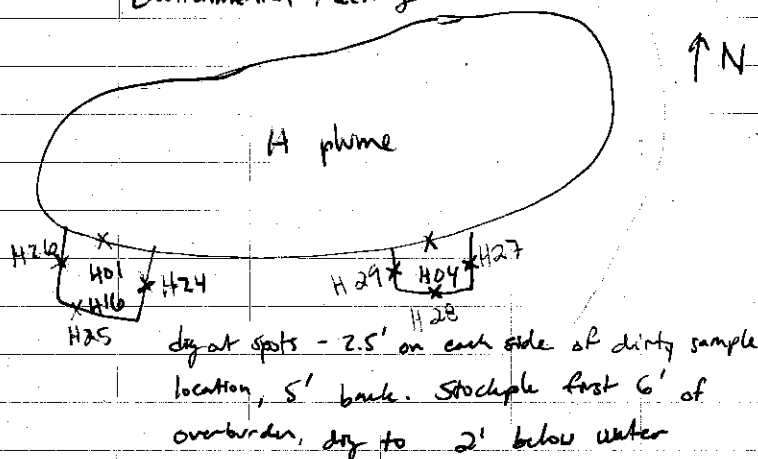 ↑ N
H plume
H26
H01
H24
H16
H25
H29
H04
H27
H28
dig out spots - 2.5' on each side of dirty sample
location, 5' back. Stockpile first 6' of
overburden, dig to 2' below water